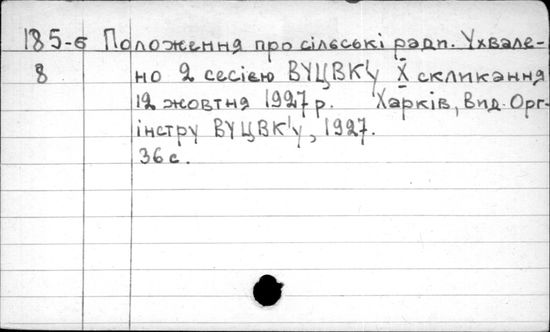 185-б Положення про сільські ради. Ухвале-
8 но 2 сесією ВУЦВК'у X скликання
12 жовтня 1927 р. Харків, Вид. Орг-
інстру ВУЦВК'у, 1927.
36 с.